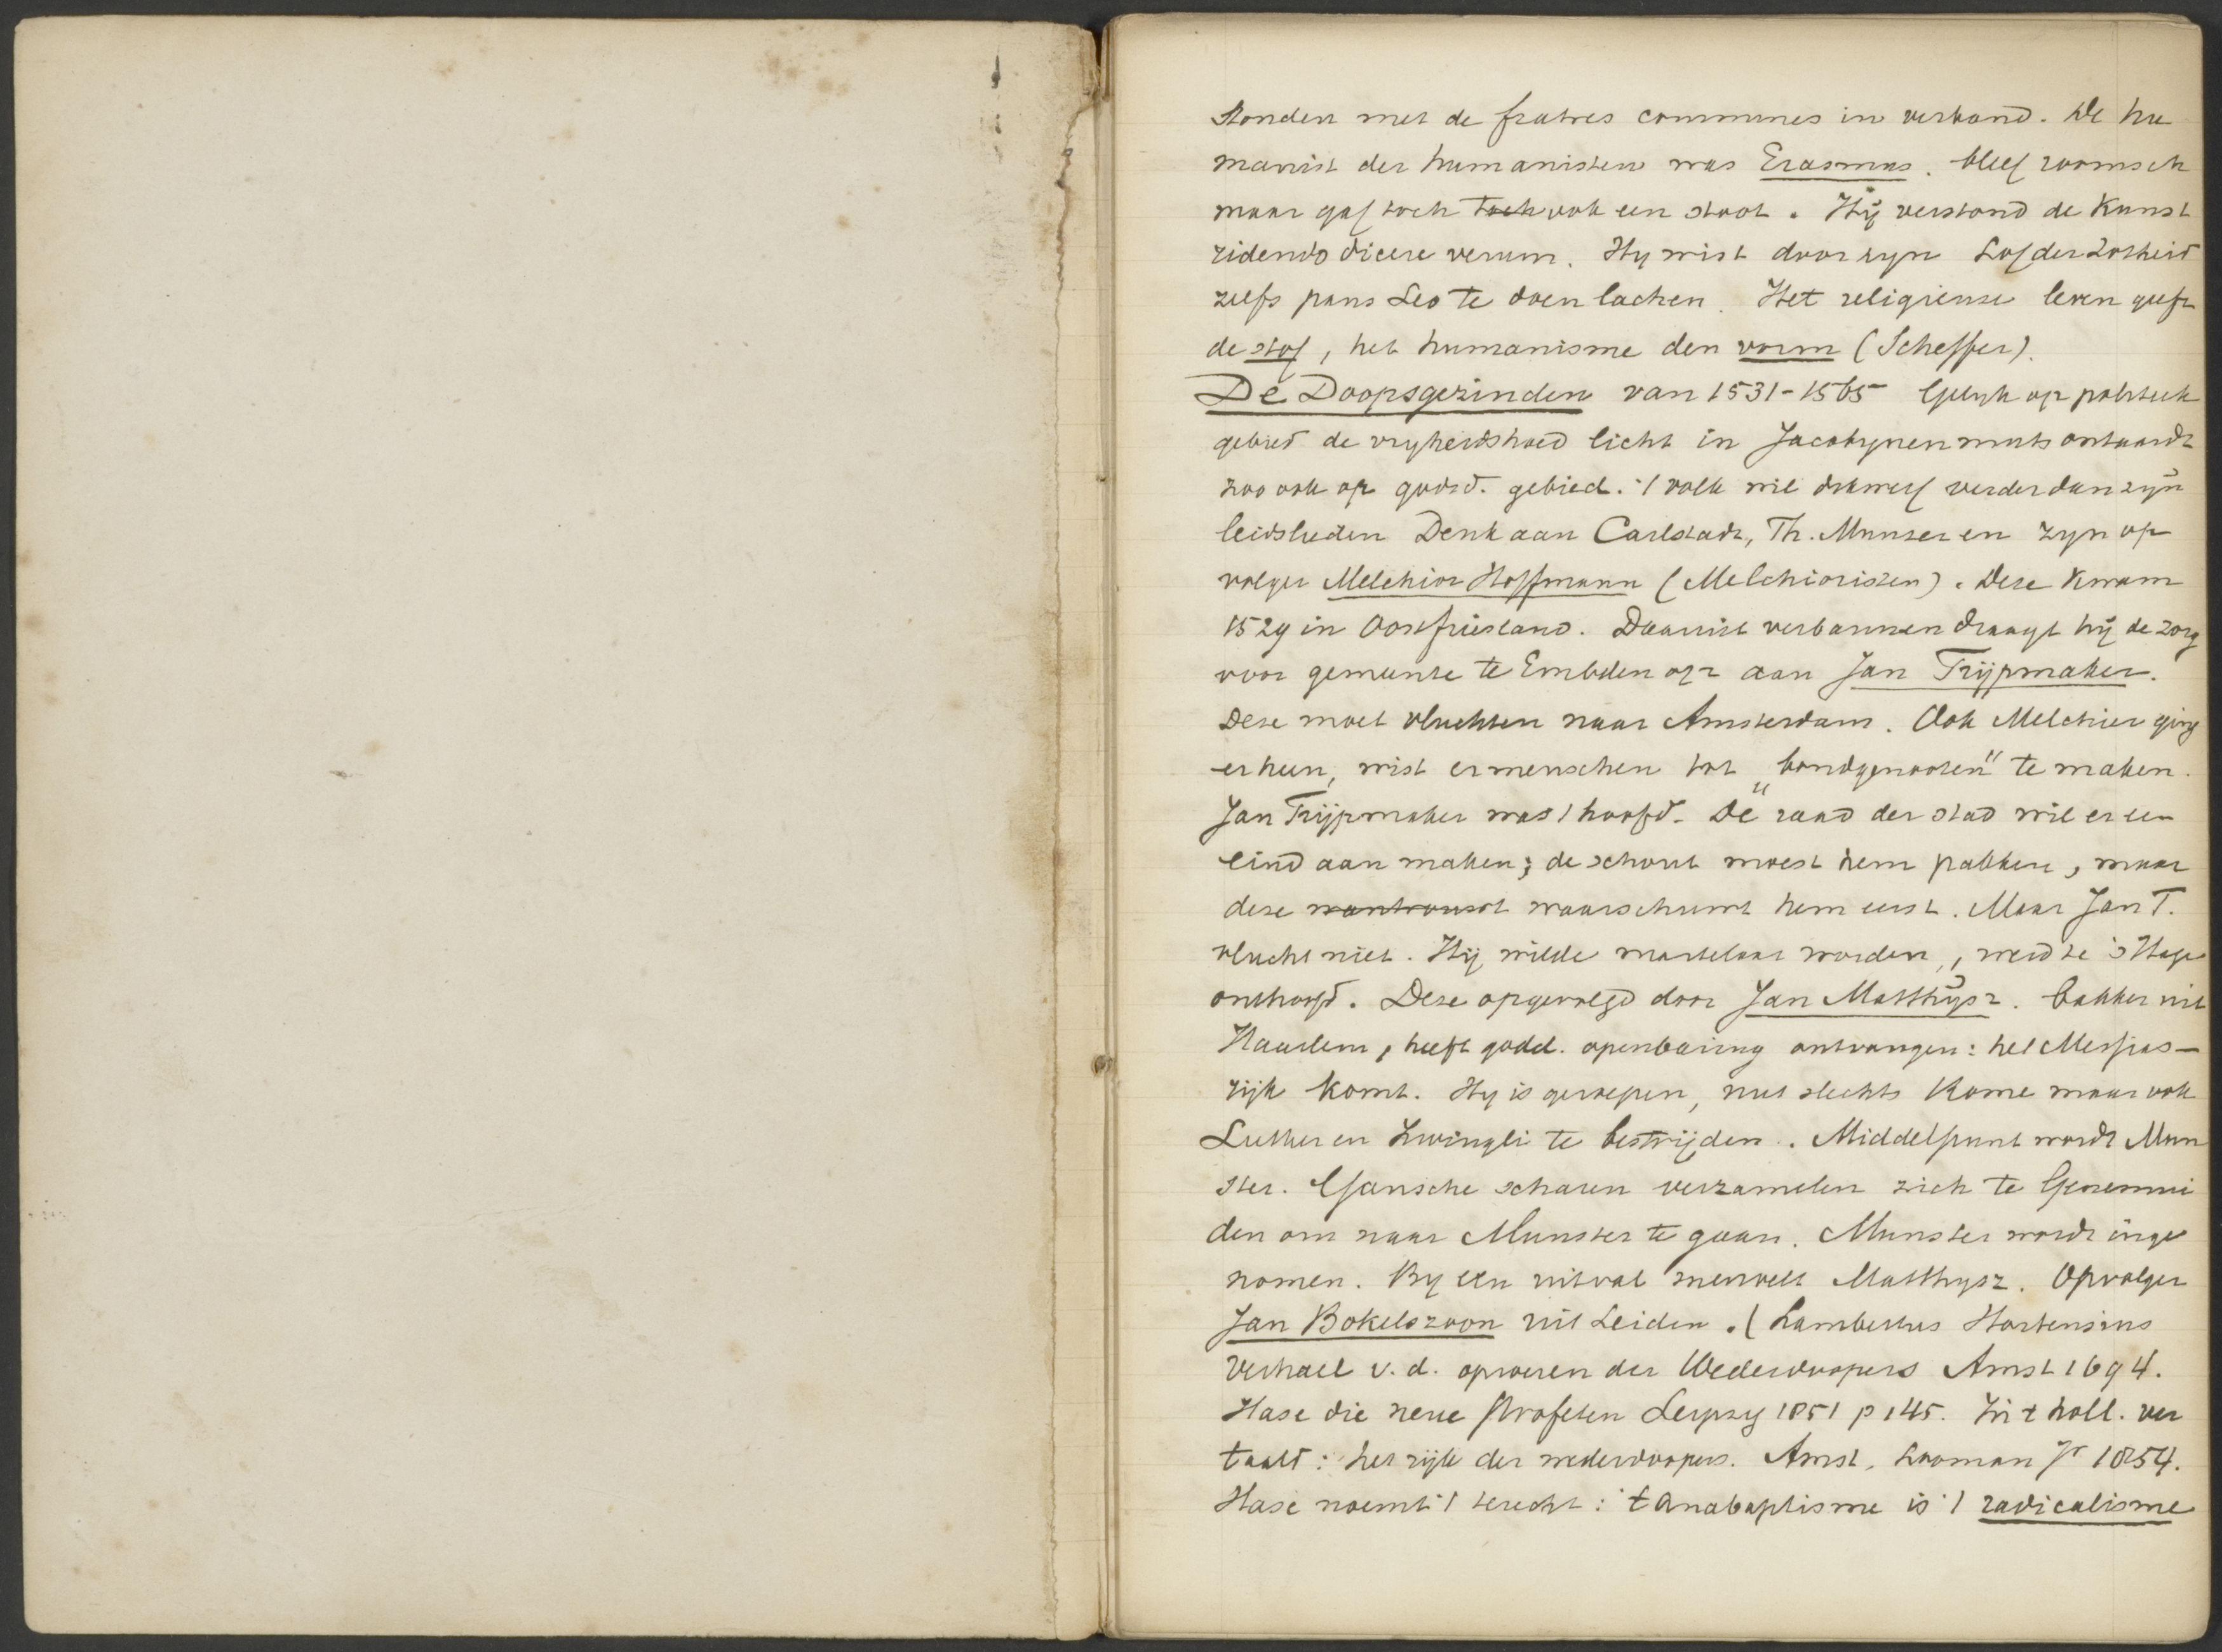 stonden met de fratres communes in verband. De hu
manist der humanisten was Erasmus. bleef roomsch
maar gaf toch toch ook een stoot. Hij verstond de Kunst
ridendo dicere verum. Hy wist door zyn Lof der Zotheid
zelfs paus Leo te doen lachen. Het religieuse leven geeft
de stof, het humanisme den vorm (Scheffer).
De Doopsgezinden van 1531-1565 Gelyk op politiek
gebied de vryheidshoed licht in Jacobynenmuts ontaardt
zoo ook op godsd. gebied. 't volk wil dikwerf verder dan zyn
leidslieden Denk aan Carlstadt, Th. Munzer en zyn op
volger Melchior Hoffmann (Melchioristen). Deze kwam
1529 in Oostfriesland. Daaruit verbannen draagt hij de zorg
voor gemeente te Embden op aan Jan Trijpmaker.
Deze moet vluchten naar Amsterdam. Ook Melchior ging
er heen, wist er menschen tot „bondgenooten" te maken.
Jan Trijpmaker was 't hoofd. De raad der stad wil er een
eind aan maken; de schout moest hem pakken, maar
deze waarschuwt hem eerst. Maar Jan T.
vlucht niet. Hij wilde martelaar worden, werd te 's Hage
onthoofd. Deze opgevolgd door Jan Matthysz. bakker uit
Haarlem, heeft godd. openbaring ontvangen: het Messias-
rijk komt. Hy is geroepen, niet slechts Rome maar ook
Luther en Zwingli te bestrijden. Middelpunt wordt Mun
ster. Gansche scharen verzamelen zich te Genemui
den om naar Munster te gaan. Munster wordt inge
nomen. By een uitval sneuvelt Matthysz. Opvolger
Jan Bokelszoon uit Leiden. (Lambertus Hortensius
Verhael v. d. oproeren der Wederdoopers Amst 1694.
Hase die neue Profeten Leipzig 1851 p 145. In 't holl. ver
taald: het rijk der wederdoopers. Amst. Looman Jr 1854.
Hase noemt 't terecht: 't anabaptisme is 't radicalisme